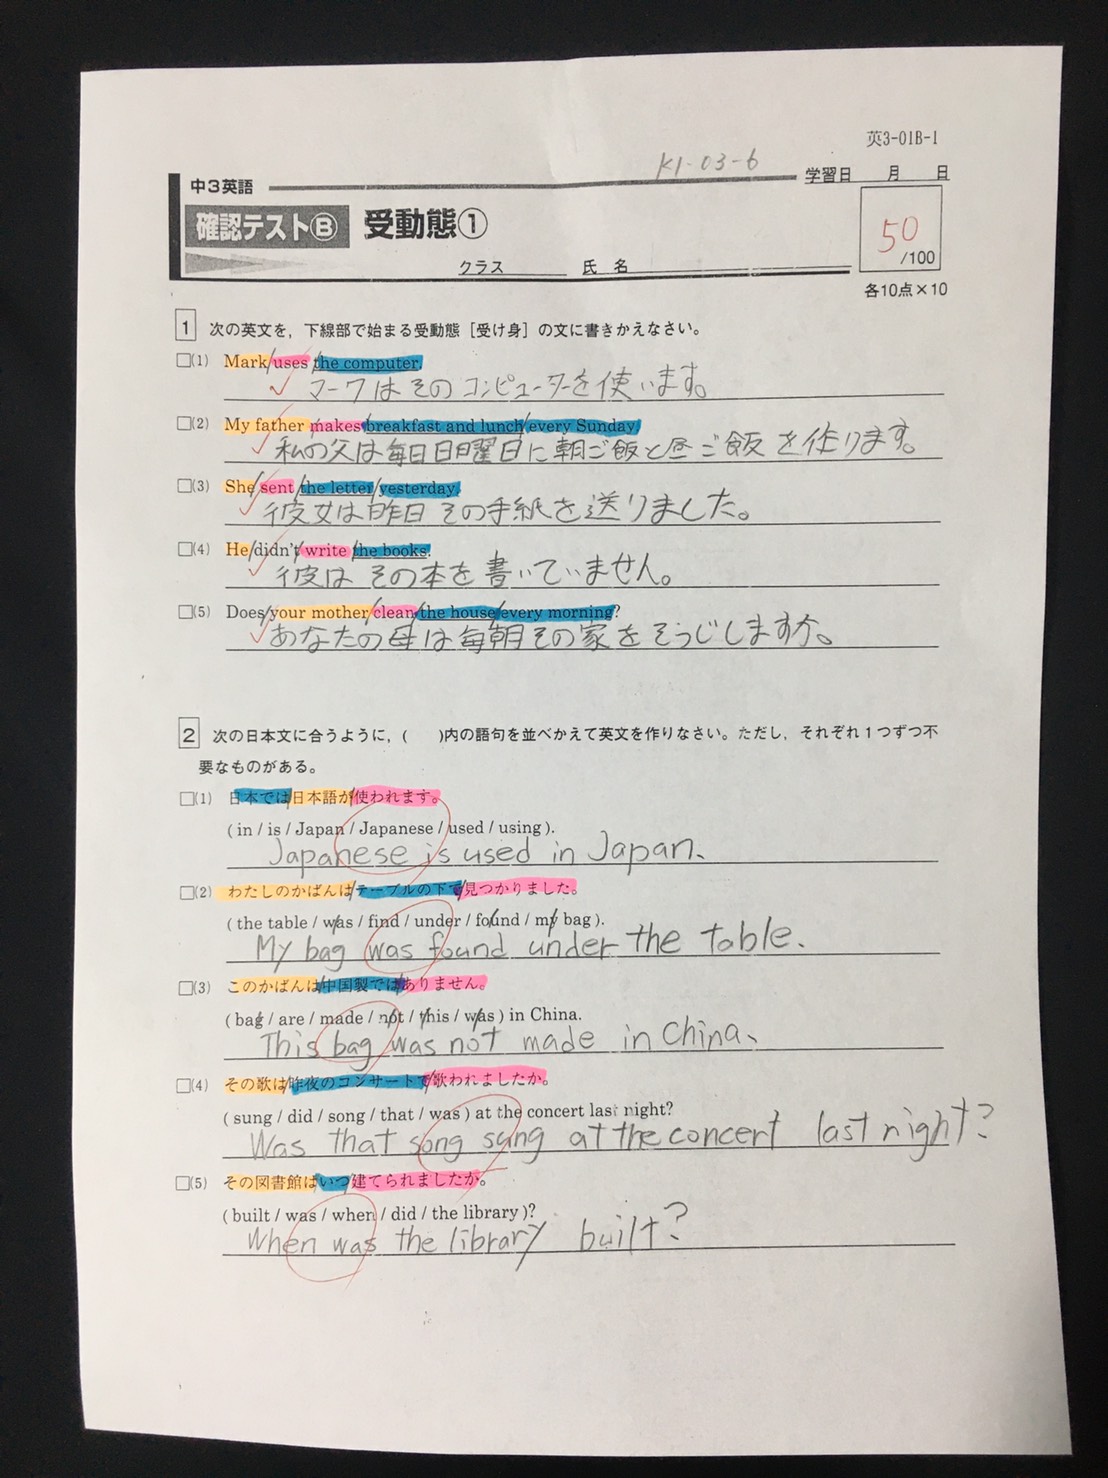 英3-01B-1
K1-03-6
中3英語
学習日 月 日
確認テストⒷ 受動態①
50
/100
クラス 氏名
各10点×10
1 次の英文を，下線部で始まる受動態［受け身］の文に書きかえなさい。
□(1) Mark/uses/the computer.
マークはそのコンピューターを使います。
□(2) My father/makes/breakfast and lunch/every Sunday.
私の父は毎日日曜日に朝ご飯と昼ご飯を作ります。
□(3) She/sent/the letter/yesterday.
彼女は昨日その手紙を送りました。
□(4) He/didn't/write/the books.
彼はその本を書いていません。
□(5) Does/your mother/clean/the house/every morning?
あなたの母は毎朝その家をそうじしますか。
2 次の日本文に合うように，( )内の語句を並べかえて英文を作りなさい。ただし，それぞれ１つずつ不
要なものがある。
□(1) 日本では/日本語が/使われます。
( in / is / Japan / Japanese / used / using ).
Japanese is used in Japan.
□(2) わたしのかばんは/テーブルの下で/見つかりました。
( the table / was / find / under / found / my bag ).
My bag was found under the table.
□(3) このかばんは/中国製では/ありません。
( bag / are / made / not / this / was ) in China.
This bag was not made in China.
□(4) その歌は/昨夜のコンサートで/歌われましたか。
( sung / did / song / that / was ) at the concert last night?
Was that song sung at the concert last night?
□(5) その図書館は/いつ/建てられましたか。
( built / was / when / did / the library )?
When was the library built?